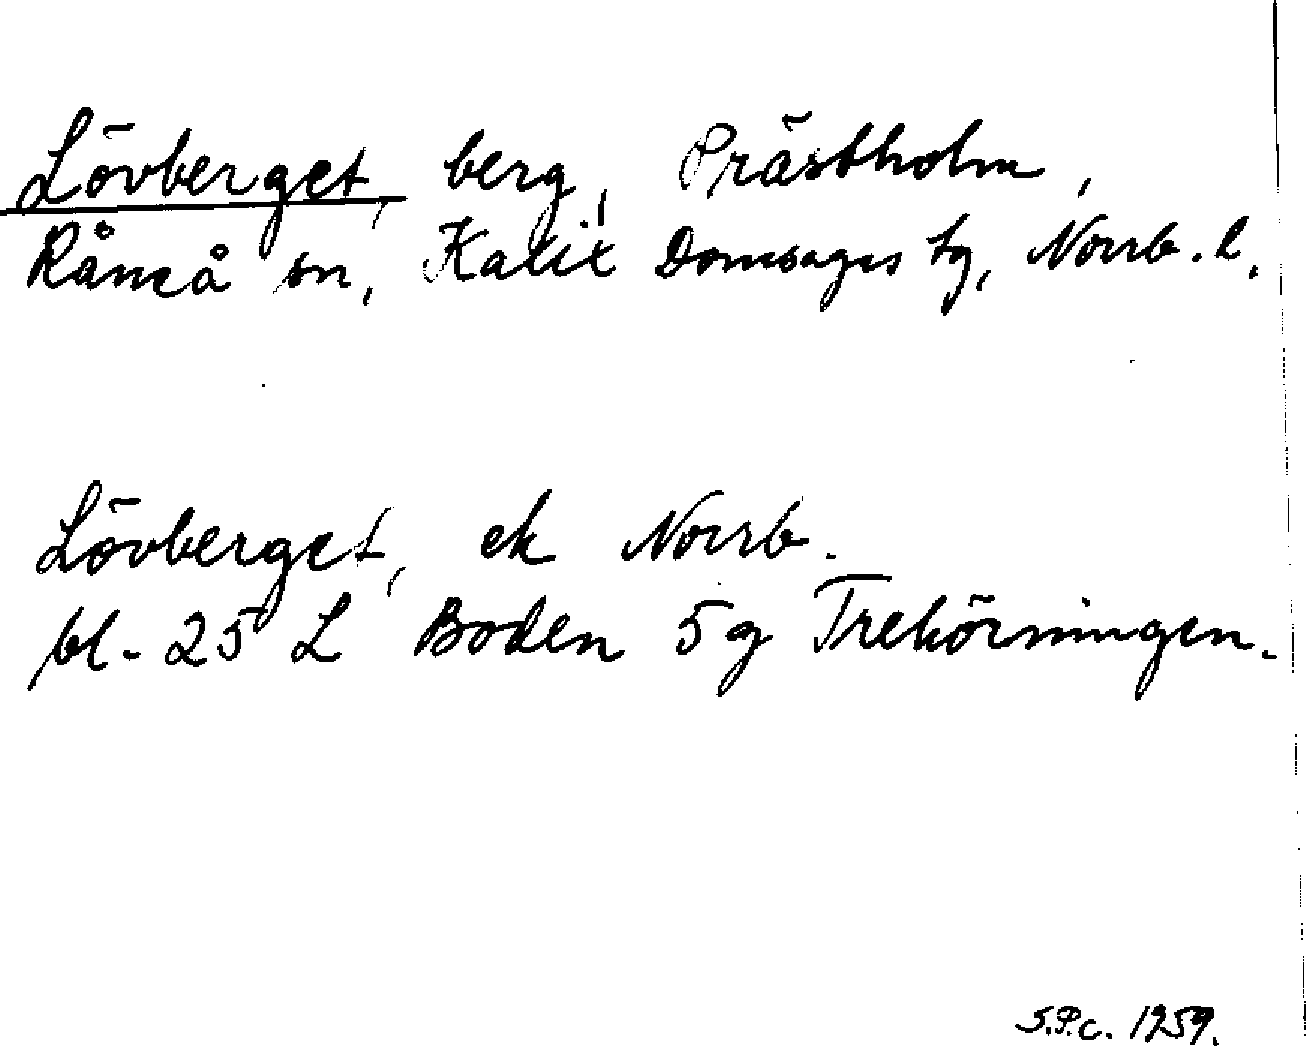 Lövberget, berg, Prästholm,
Råneå sn, Kalix Domsagas tg, Norrb. l.
Lövberget, ek Norrb.
bl. 25 L Boden 5g Trehörningen.
S.P.c. 1959.